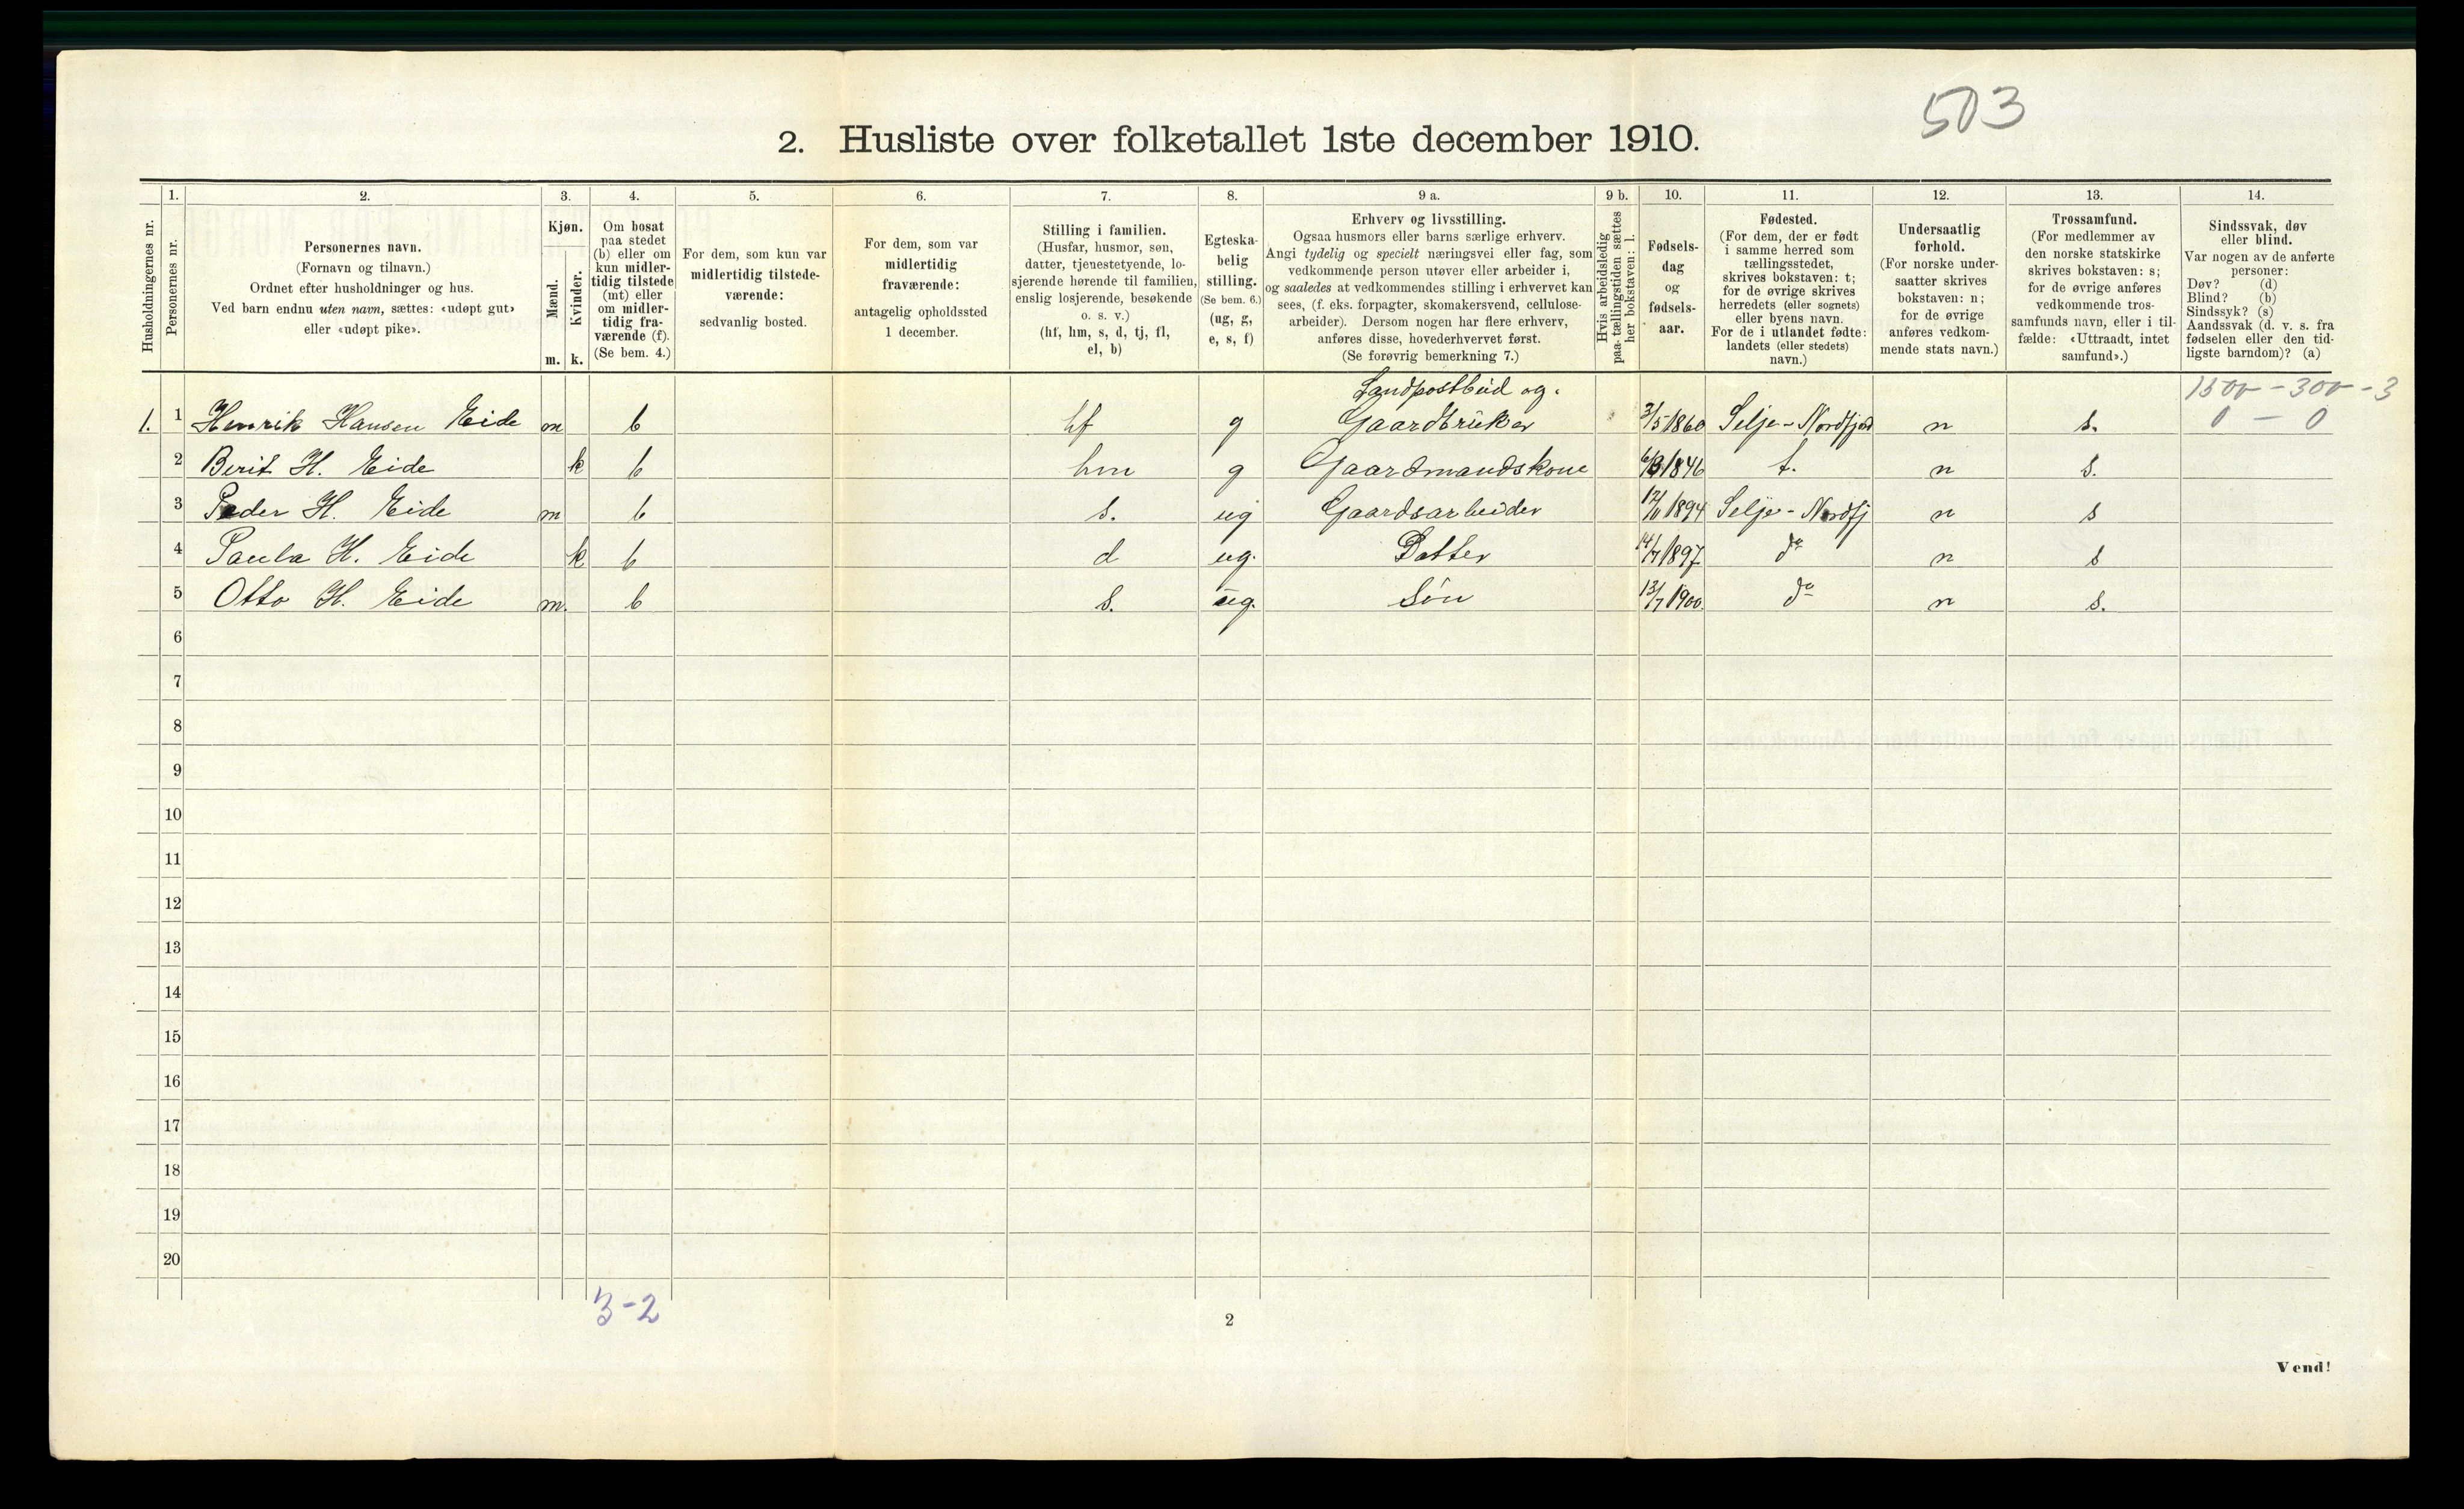 503
2. Husliste over folketallet 1ste december 1910.
Husholdningernes nr.
1.
Personernes nr.
2.
Personernes navn.
(Fornavn og tilnavn.)
Ordnet efter husholdninger og hus.
Ved barn endnu uten navn, sættes: «udøpt gut»
eller «udøpt pike».
3.
Kjøn.
Mænd.
Kvinder.
m. k.
4.
Om bosat
paa stedet
(b) eller om
kun midler-
tidig tilstede
(mt) eller
om midler-
tidig fra-
værende (f).
(Se bem. 4.)
5.
For dem, som kun var
midlertidig tilstede-
værende:
sedvanlig bosted.
6.
For dem, som var
midlertidig
fraværende:
antagelig opholdssted
1 december.
7.
Stilling i familien.
(Husfar, husmor, søn,
datter, tjenestetyende, lo-
sjerende hørende til familien,
enslig losjerende, besøkende
o. s. v.)
(hf, hm, s, d, tj, fl,
el, b)
8.
Egteska-
belig
stilling.
(Se bem. 6.)
(ug, g,
e, s, f)
9 a.
Erhverv og livsstilling.
Ogsaa husmors eller barns særlige erhverv.
Angi tydelig og specielt næringsvei eller fag, som
vedkommende person utøver eller arbeider i,
og saaledes at vedkommendes stilling i erhvervet kan
sees, (f. eks. forpagter, skomakersvend, cellulose-
arbeider). Dersom nogen har flere erhverv,
anføres disse, hovederhvervet først.
(Se forøvrig bemerkning 7.)
9 b.
Hvis arbeidsledig
paa tællingstiden sættes
her bokstaven: l.
10.
Fødsels-
dag
og
fødsels-
aar.
11.
Fødested.
(For dem, der er født
i samme herred som
tællingsstedet,
skrives bokstaven: t;
for de øvrige skrives
herredets (eller sognets)
eller byens navn.
For de i utlandet fødte:
landets (eller stedets)
navn.)
12.
Undersaatlig
forhold.
(For norske under-
saatter skrives
bokstaven: n;
for de øvrige
anføres vedkom-
mende stats navn.)
13.
Trossamfund.
(For medlemmer av
den norske statskirke
skrives bokstaven: s;
for de øvrige anføres
vedkommende tros-
samfunds navn, eller i til-
fælde: «Uttraadt, intet
samfund».)
14.
Sindssvak, døv
eller blind.
Var nogen av de anførte
personer:
Døv? (d)
Blind? (b)
Sindssyk? (s)
Aandssvak (d. v. s. fra
fødselen eller den tid-
ligste barndom)? (a)
Landpostbud og. 1500 - 300 - 3
1. 1 Henrik Hansen Eide m b hf g Gaardbruker 3/5 1860 Selje - Nordfjord n s. 0 - 0
2 Berit H. Eide k b hm g Gaardmandskone 1846 t. n s.
3 Peder H. Eide m b s. ug Gaardsarbeider 1894 Selje - Nordfj n s
4 Paula H. Eide k b d ug. Datter 14/7 1897 do n s
5 Otto H. Eide m. b s. ug. Søn 13/7 1900. do n s.
6
7
8
9
10
11
12
13
14
15
16
17
18
19
20
3-2
2
Vend!